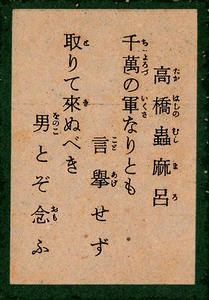 高橋蟲麻呂
千萬の軍なりとも
言擧せず
取りて來ぬべき
男とぞ念ふ